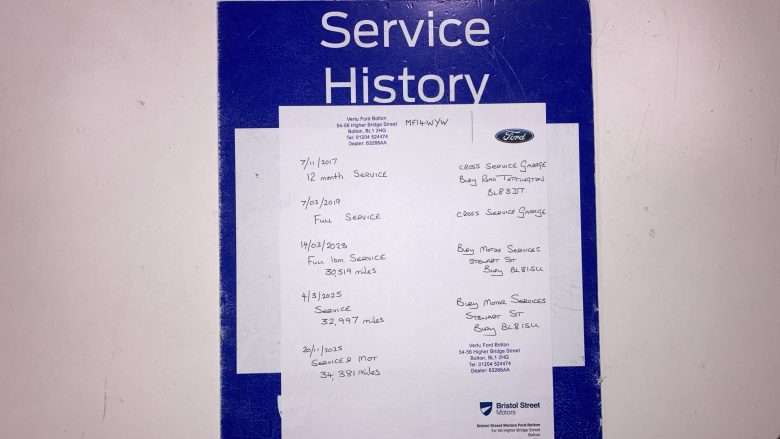 Service
History
Vertu Ford Bolton
54-56 Higher Bridge Street
Bolton, BL1 2HG
Tel: 01204 524474
Dealer: 63266AA
MF14-WYW
Ford
7/11/2017
12 month SERVICE
CROSS SERVICE GARAGE
BURY ROAD TOTTINGTON
BL8 3DT
7/03/2019
FULL SERVICE
CROSS SERVICE GARAGE
14/03/2023
FULL 10m SERVICE
30,519 miles
BURY MOTOR SERVICES
STEWART ST
BURY BL81SU
4/3/2025
SERVICE
32,997 miles
BURY MOTOR SERVICES
STEWART ST
BURY BL81SU
20/11/2025
SERVICE & MOT
34,381 miles
Vertu Ford Bolton
54-56 Higher Bridge Street
Bolton, BL1 2HG
Tel: 01204 524474
Dealer: 63266AA
Bristol Street
Motors
Bristol Street Motors Ford Bolton
54-56 Higher Bridge Street
Bolton